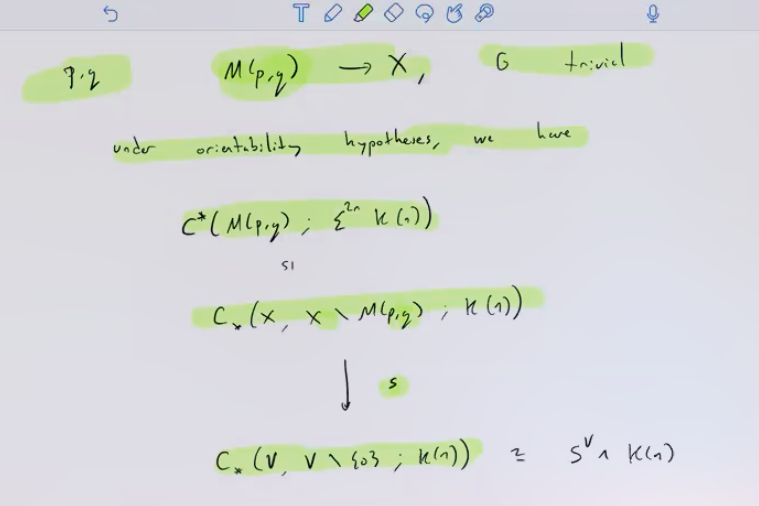 p,q M(p,q) → X, G trivial
under orientability hypotheses, we have
C*(M(p,q) ; Σ²ⁿ K(n))
SI
C_*(X, X \ M(p,q) ; K(n))
↓ s
C_*(V, V \ {0} ; K(n)) ≃ S^V ∧ K(n)